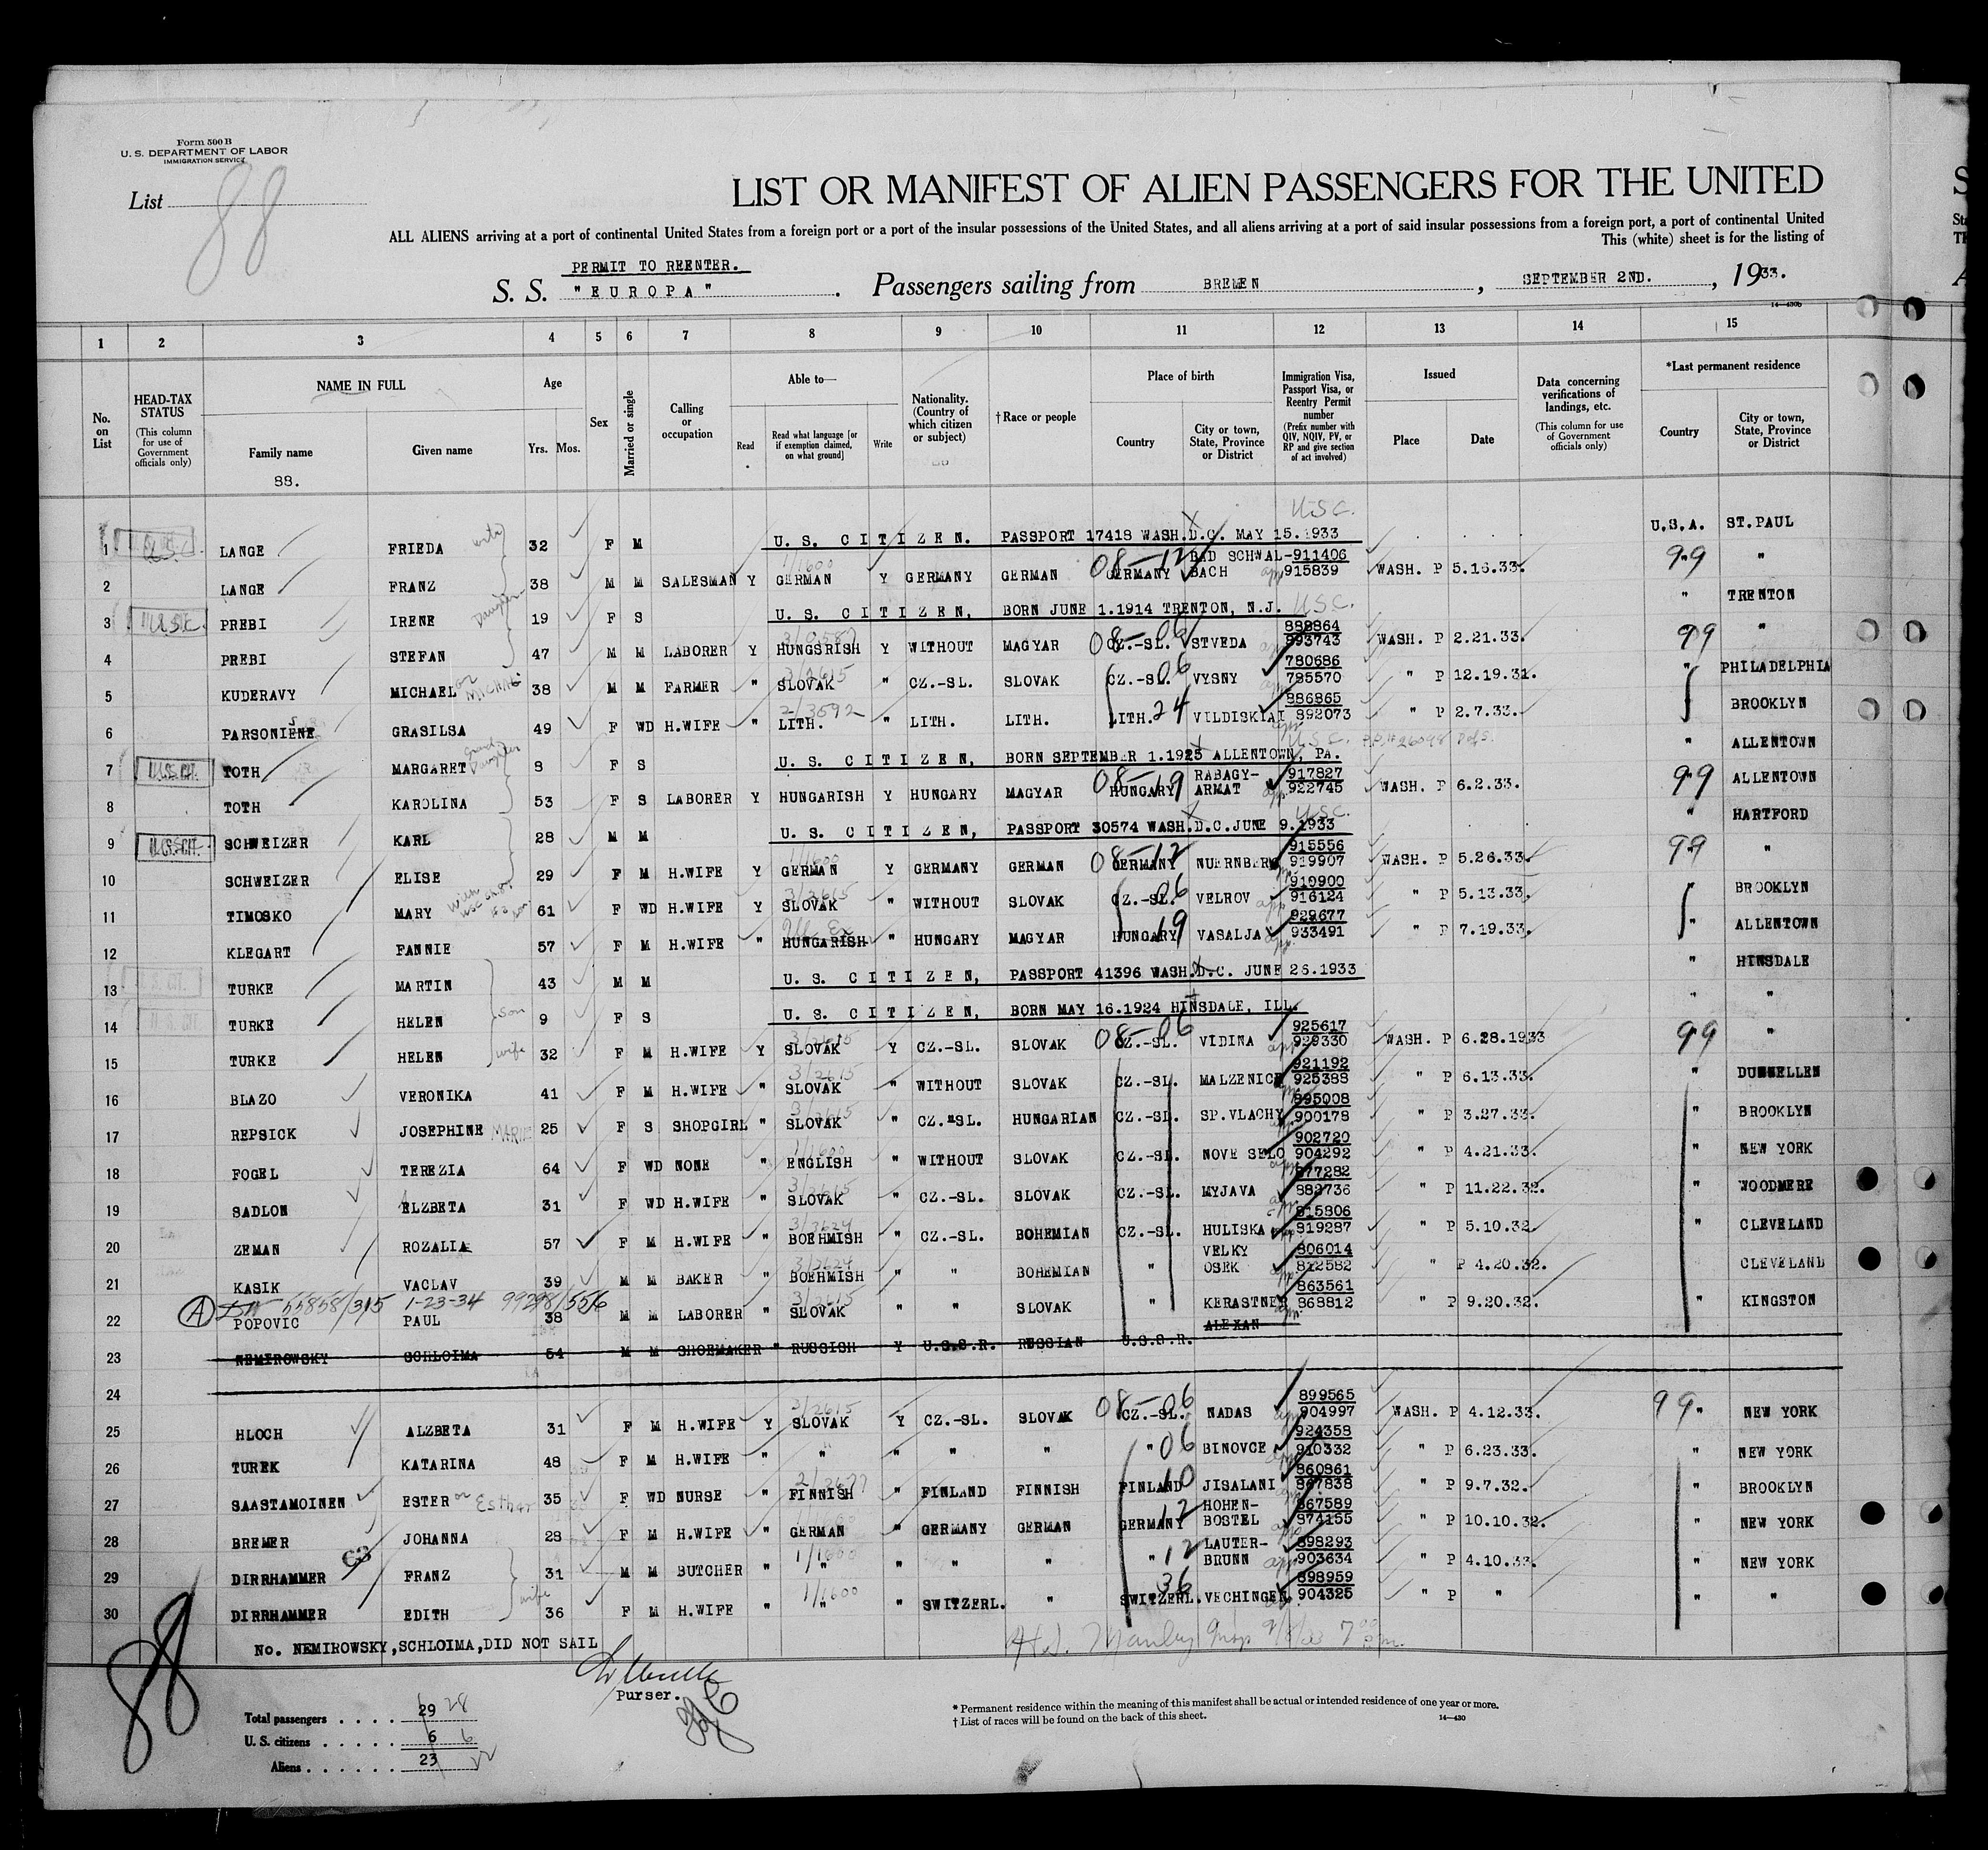 Form 500 B
U. S. DEPARTMENT OF LABOR
IMMIGRATION SERVICE
List 88
LIST OR MANIFEST OF ALIEN PASSENGERS FOR THE UNITED
ALL ALIENS arriving at a port of continental United States from a foreign port or a port of the insular possessions of the United States, and all aliens arriving at a port of said insular possessions from a foreign port, a port of continental United
This (white) sheet is for the listing of
PERMIT TO REENTER.
S. S. "EUROPA". Passengers sailing from BREMEN, SEPTEMBER 2ND., 1933.
14—430b
1 2 3 4 5 6 7 8 9 10 11 12 13 14 15
No. on List
HEAD-TAX STATUS (This column for use of Government officials only)
NAME IN FULL Family name Given name
88.
Age Yrs. Mos.
Sex
Married or single
Calling or occupation
Able to— Read Read what language [or if exemption claimed, on what ground] Write
Nationality. (Country of which citizen or subject)
† Race or people
Place of birth Country City or town, State, Province or District
Immigration Visa, Passport Visa, or Reentry Permit number (Prefix number with QIV, NQIV, PV, or RP and give section of act involved)
Issued Place Date
Data concerning verifications of landings, etc. (This column for use of Government officials only)
*Last permanent residence Country City or town, State, Province or District
1 U.S.C. LANGE FRIEDA wife 32 F M U. S. CITIZEN. PASSPORT 17418 WASH.D.C. MAY 15.1933 U.S.C. U.S.A. ST.PAUL
2 LANGE FRANZ 38 M M SALESMAN Y GERMAN 1/1600 Y GERMANY GERMAN 08-12 GERMANY BAD SCHWAL-BACH 911406 915839 WASH. P 5.16.33. 99 " "
3 U.S.C. PREBI IRENE Daughter 19 F S U. S. CITIZEN, BORN JUNE 1.1914 TRENTON, N.J. U.S.C. " TRENTON
4 PREBI STEFAN 47 M M LABORER Y HUNGSRISH Y WITHOUT MAGYAR 08-06 CZ.-SL. STVEDA 888864 893743 WASH. P 2.21.33. 99 " "
5 KUDERAVY MICHAEL or MICHAL 38 M M FARMER " SLOVAK 3/2615 " CZ.-SL. SLOVAK CZ.-SL. 06 VYSNY 780686 785570 " P 12.19.31. " PHILADELPHIA
6 PARSONIENE GRASILSA 49 F WD H.WIFE " LITH. 2/3592 " LITH. LITH. LITH. 24 VILDISKIAI 886865 892073 " P 2.7.33. BROOKLYN
7 U.S. CIT. TOTH MARGARET Grand Daughter 8 F S U. S. CITIZEN, BORN SEPTEMBER 1.1925 ALLENTOWN, PA. U.S.C. " ALLENTOWN
8 TOTH KAROLINA 53 F S LABORER Y HUNGARISH Y HUNGARY MAGYAR 08-19 HUNGARY RABAGY-ARMAT 917827 922745 WASH. P 6.2.33. 99 " ALLENTOWN
9 U.S. CIT. SCHWEIZER KARL 28 M M U. S. CITIZEN, PASSPORT 30574 WASH.D.C.JUNE 9.1933 U.S.C. " HARTFORD
10 SCHWEIZER ELISE 29 F M H.WIFE Y GERMAN 1/1600 Y GERMANY GERMAN 08-12 GERMANY NUERNBERG 915556 919907 WASH. P 5.26.33. 99 " "
11 TIMOSKO MARY 61 F WD H.WIFE Y SLOVAK 3/2615 " WITHOUT SLOVAK CZ.-SL. 06 VELROV 910900 916124 " P 5.13.33. " BROOKLYN
12 KLEGART FANNIE 57 F M H.WIFE " HUNGARISH " HUNGARY MAGYAR HUNGARY 19 VASALJA 929677 933491 " P 7.19.33. " ALLENTOWN
13 U.S. CIT. TURKE MARTIN 43 M M U. S. CITIZEN, PASSPORT 41396 WASH.D.C. JUNE 26.1933 " HINSDALE
14 U.S. CIT. TURKE HELEN son 9 F S U. S. CITIZEN, BORN MAY 16.1924 HINSDALE, ILL. " "
15 TURKE HELEN wife 32 F M H.WIFE Y SLOVAK 3/2615 Y CZ.-SL. SLOVAK 08-06 CZ.-SL. VIDINA 925617 929330 WASH. P 6.28.1933 99 "
16 BLAZO VERONIKA 41 F M H.WIFE " SLOVAK 3/2615 " WITHOUT SLOVAK CZ.-SL. MALZENICE 921192 925388 " P 6.13.33. " DUNNELLEN
17 REPSICK JOSEPHINE MARIE 25 F S SHOPGIRL " SLOVAK 3/2615 " CZ.-SL. HUNGARIAN CZ.-SL. SP.VLACHY 895008 900178 " P 3.27.33. " BROOKLYN
18 FOGEL TEREZIA 64 F WD NONE " ENGLISH 1/1600 " WITHOUT SLOVAK CZ.-SL. NOVE SELO 902720 904292 " P 4.21.33. " NEW YORK
19 SADLON ELZBETA 31 F WD H.WIFE " SLOVAK 3/2615 " CZ.-SL. SLOVAK CZ.-SL. MYJAVA 877282 882736 " P 11.22.32. " WOODMERE
20 ZEMAN ROZALIA 57 F M H.WIFE " BOEHMISH 3/2624 " CZ.-SL. BOHEMIAN CZ.-SL. HULISKA 815806 819287 " P 5.10.32. " CLEVELAND
21 KASIK VACLAV 39 M M BAKER " BOEHMISH 3/2624 " " BOHEMIAN " VELKY OSEK 806014 812582 " P 4.20.32. " CLEVELAND
(A) 55858/315 1-23-34 99298/556
22 POPOVIC PAUL 38 M M LABORER " SLOVAK 3/2615 " " SLOVAK " KERASTNER 863561 868812 " P 9.20.32. " KINGSTON
23 NEMIROWSKY SCHLOIMA 54 M M SHOEMAKER " RUSSISH Y U.S.S.R. RUSSIAN U.S.S.R. ALEXAN
24
25 HLOCH ALZBETA 31 F M H.WIFE Y SLOVAK 3/2615 Y CZ.-SL. SLOVAK 08-06 CZ.-SL. NADAS 899565 904997 WASH. P 4.12.33. 99 " NEW YORK
26 TUREK KATARINA 48 F M H.WIFE " " " " " " 06 BINOVCE 924358 910332 " P 6.23.33. " NEW YORK
27 SAASTAMOINEN ESTER or Esther 35 F WD NURSE " FINNISH 2/3677 " FINLAND FINNISH FINLAND 10 JISALANI 860861 867838 " P 9.7.32. " BROOKLYN
28 BREMER JOHANNA 28 F M H.WIFE " GERMAN " GERMANY GERMAN GERMANY 12 HOHEN-BOSTEL 867589 874155 " P 10.10.32. " NEW YORK
29 DIRRHAMMER FRANZ 31 M M BUTCHER " " 1/1600 " " " " 12 LAUTER-BRUNN 898293 903634 " P 4.10.33. " NEW YORK
30 DIRRHAMMER EDITH wife 36 F M H.WIFE " " 1/1600 " SWITZERL. " SWITZERL. 36 VECHINGEN 898959 904325 " P " " "
No. NEMIROWSKY,SCHLOIMA,DID NOT SAIL
Purser.
88
Total passengers . . . . 29 28
U. S. citizens . . . . . 6 6
Aliens . . . . . . 23 22
* Permanent residence within the meaning of this manifest shall be actual or intended residence of one year or more.
† List of races will be found on the back of this sheet.
14—430